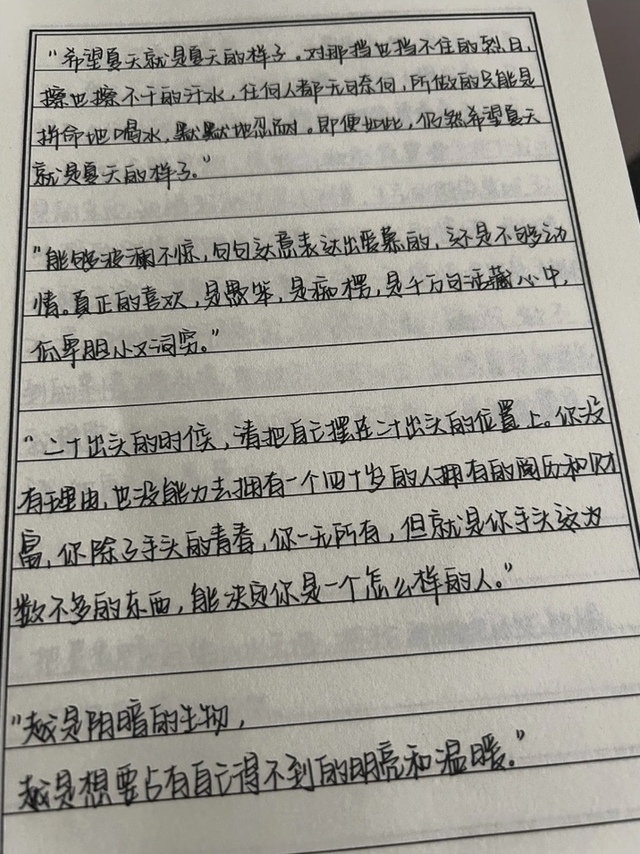 “希望夏天就是夏天的样子。对那挡也挡不住的烈日,
擦也擦不干的汗水,任何人都无可奈何,所做的只能是
拼命地喝水,默默地忍耐。即便如此,仍然希望夏天
就是夏天的样子。”
“能够波澜不惊,句句达意表达出爱慕的,还是不够动
情。真正的喜欢,是愚笨,是痴楞,是千万句话藏心中,
但胆小又词穷。”
“二十出头的时候,请把自己摆在二十出头的位置上。你没
有理由,也没能力去拥有一个四十岁的人拥有的阅历和财
富,你除了手头的青春,你一无所有,但就是你手头这为
数不多的东西,能决定你是一个怎么样的人。”
“越是阴暗的生物,
越是想要占有自己得不到的明亮和温暖。”